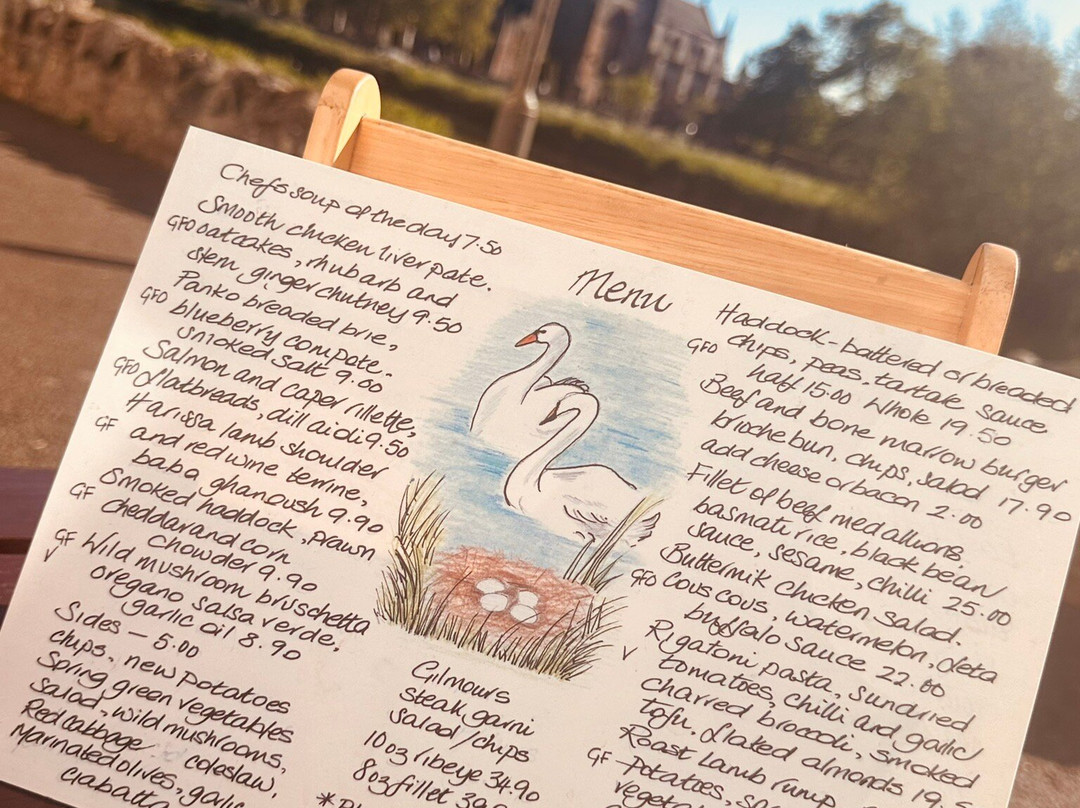 Chefs soup of the day 7.50
Smooth chicken liver pate.
GFO oatcakes, rhubarb and
stem ginger chutney 9.50
Panko breaded brie,
GFO blueberry compote.
smoked salt 9.00
Salmon and caper rillette,
GFO flatbreads, dill aioli 9.50
Harissa lamb shoulder
GF and red wine terrine,
baba ghanoush 9.90
Smoked haddock, prawn
GF Cheddar and corn
Chowder 9.90
GF Wild mushroom bruschetta
V oregano salsa verde,
garlic oil 8.90
Sides - 5.00
chips, new potatoes
Spring green vegetables
salad, wild mushrooms,
Red cabbage coleslaw,
Marinated olives, garlic
ciabatta
Menu
Gilmours
steak garni
salad/chips
10oz ribeye 34.90
8oz fillet
Haddock - battered or breaded
GFO chips, peas, tartare sauce
half 15.00 Whole 19.50
Beef and bone marrow burger
brioche bun, chips, salad 17.90
add cheese or bacon 2.00
Fillet of beef medallions.
basmati rice, black bean
sauce, sesame, chilli 25.00
Buttermilk chicken salad.
GFO Cous cous, watermelon, feta
buffalo sauce 22.00
V Rigatoni pasta, sundried
tomatoes, chilli and garlic
charred broccoli, smoked
tofu, flaked almonds 19
Roast Lamb rump
GF Potatoes,